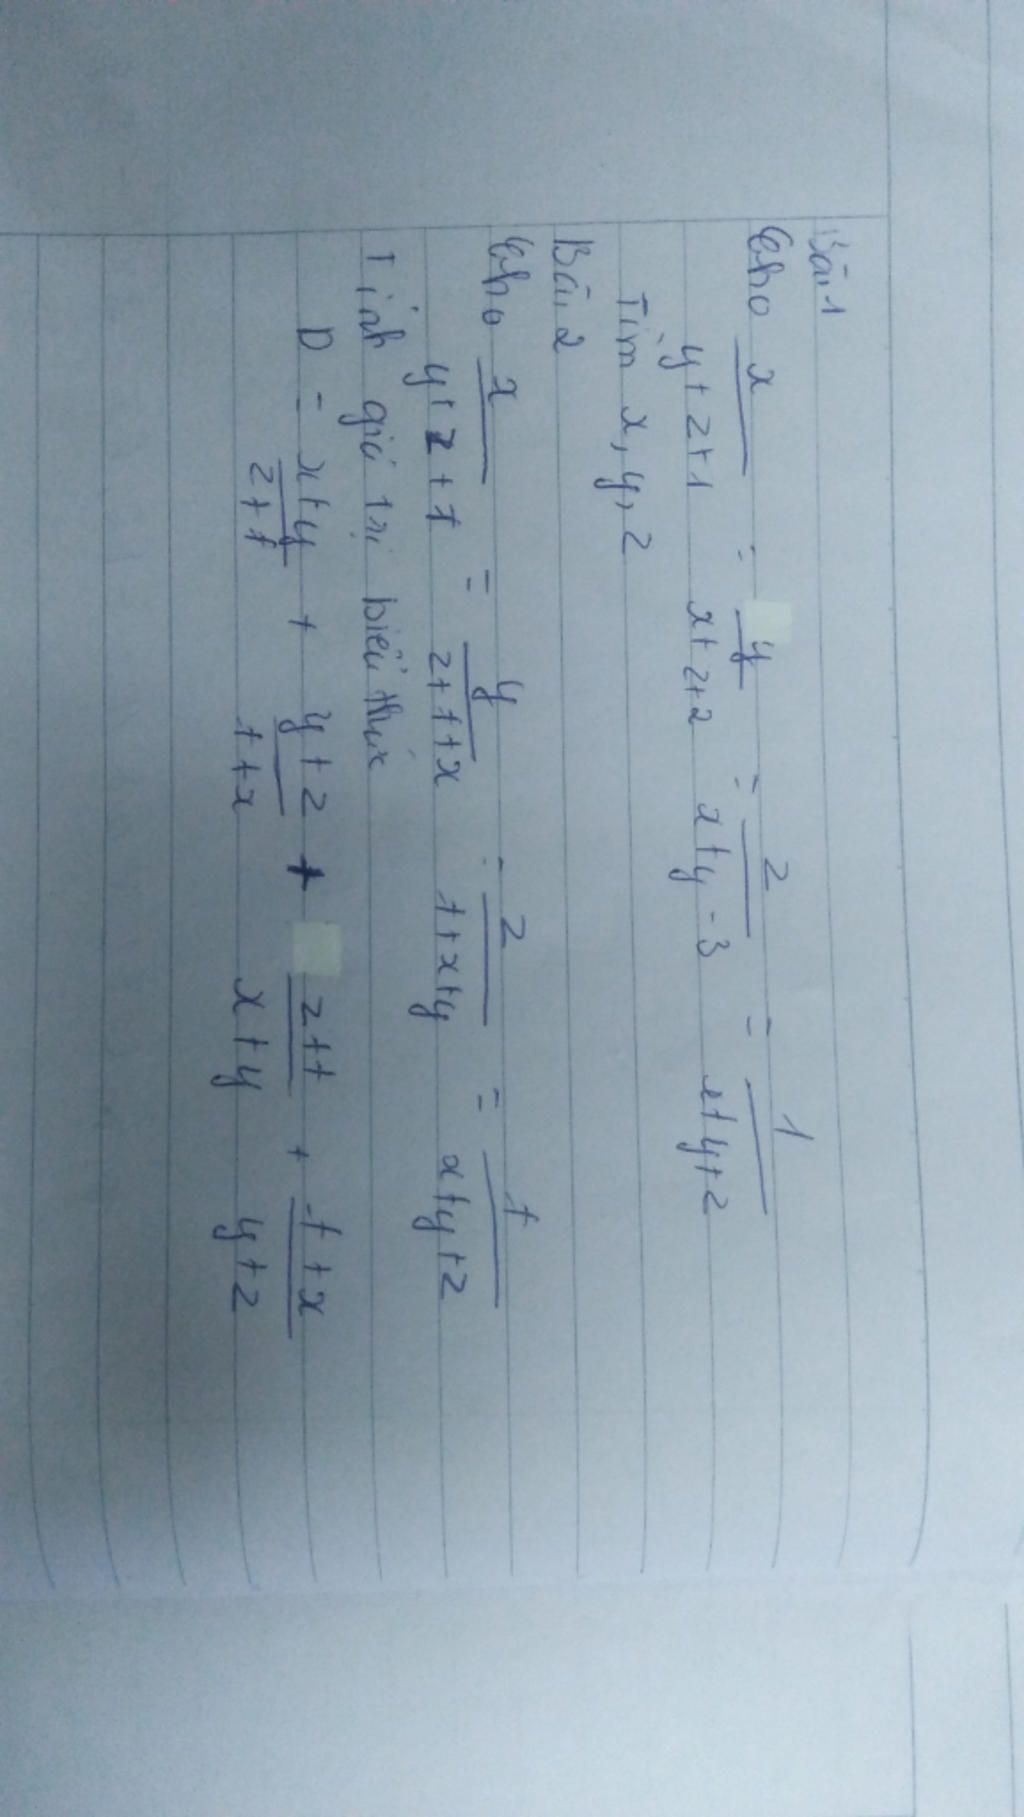 Bài 1
Cho x/(y+z+1) = y/(x+z+2) = z/(x+y-3) = 1/(x+y+z)
Tìm x, y, z
Bài 2
Cho x/(y+z+t) = y/(z+t+x) = z/(t+x+y) = t/(x+y+z)
Tính giá trị biểu thức
D = (x+y)/(z+t) + (y+z)/(t+x) + (z+t)/(x+y) + (t+x)/(y+z)